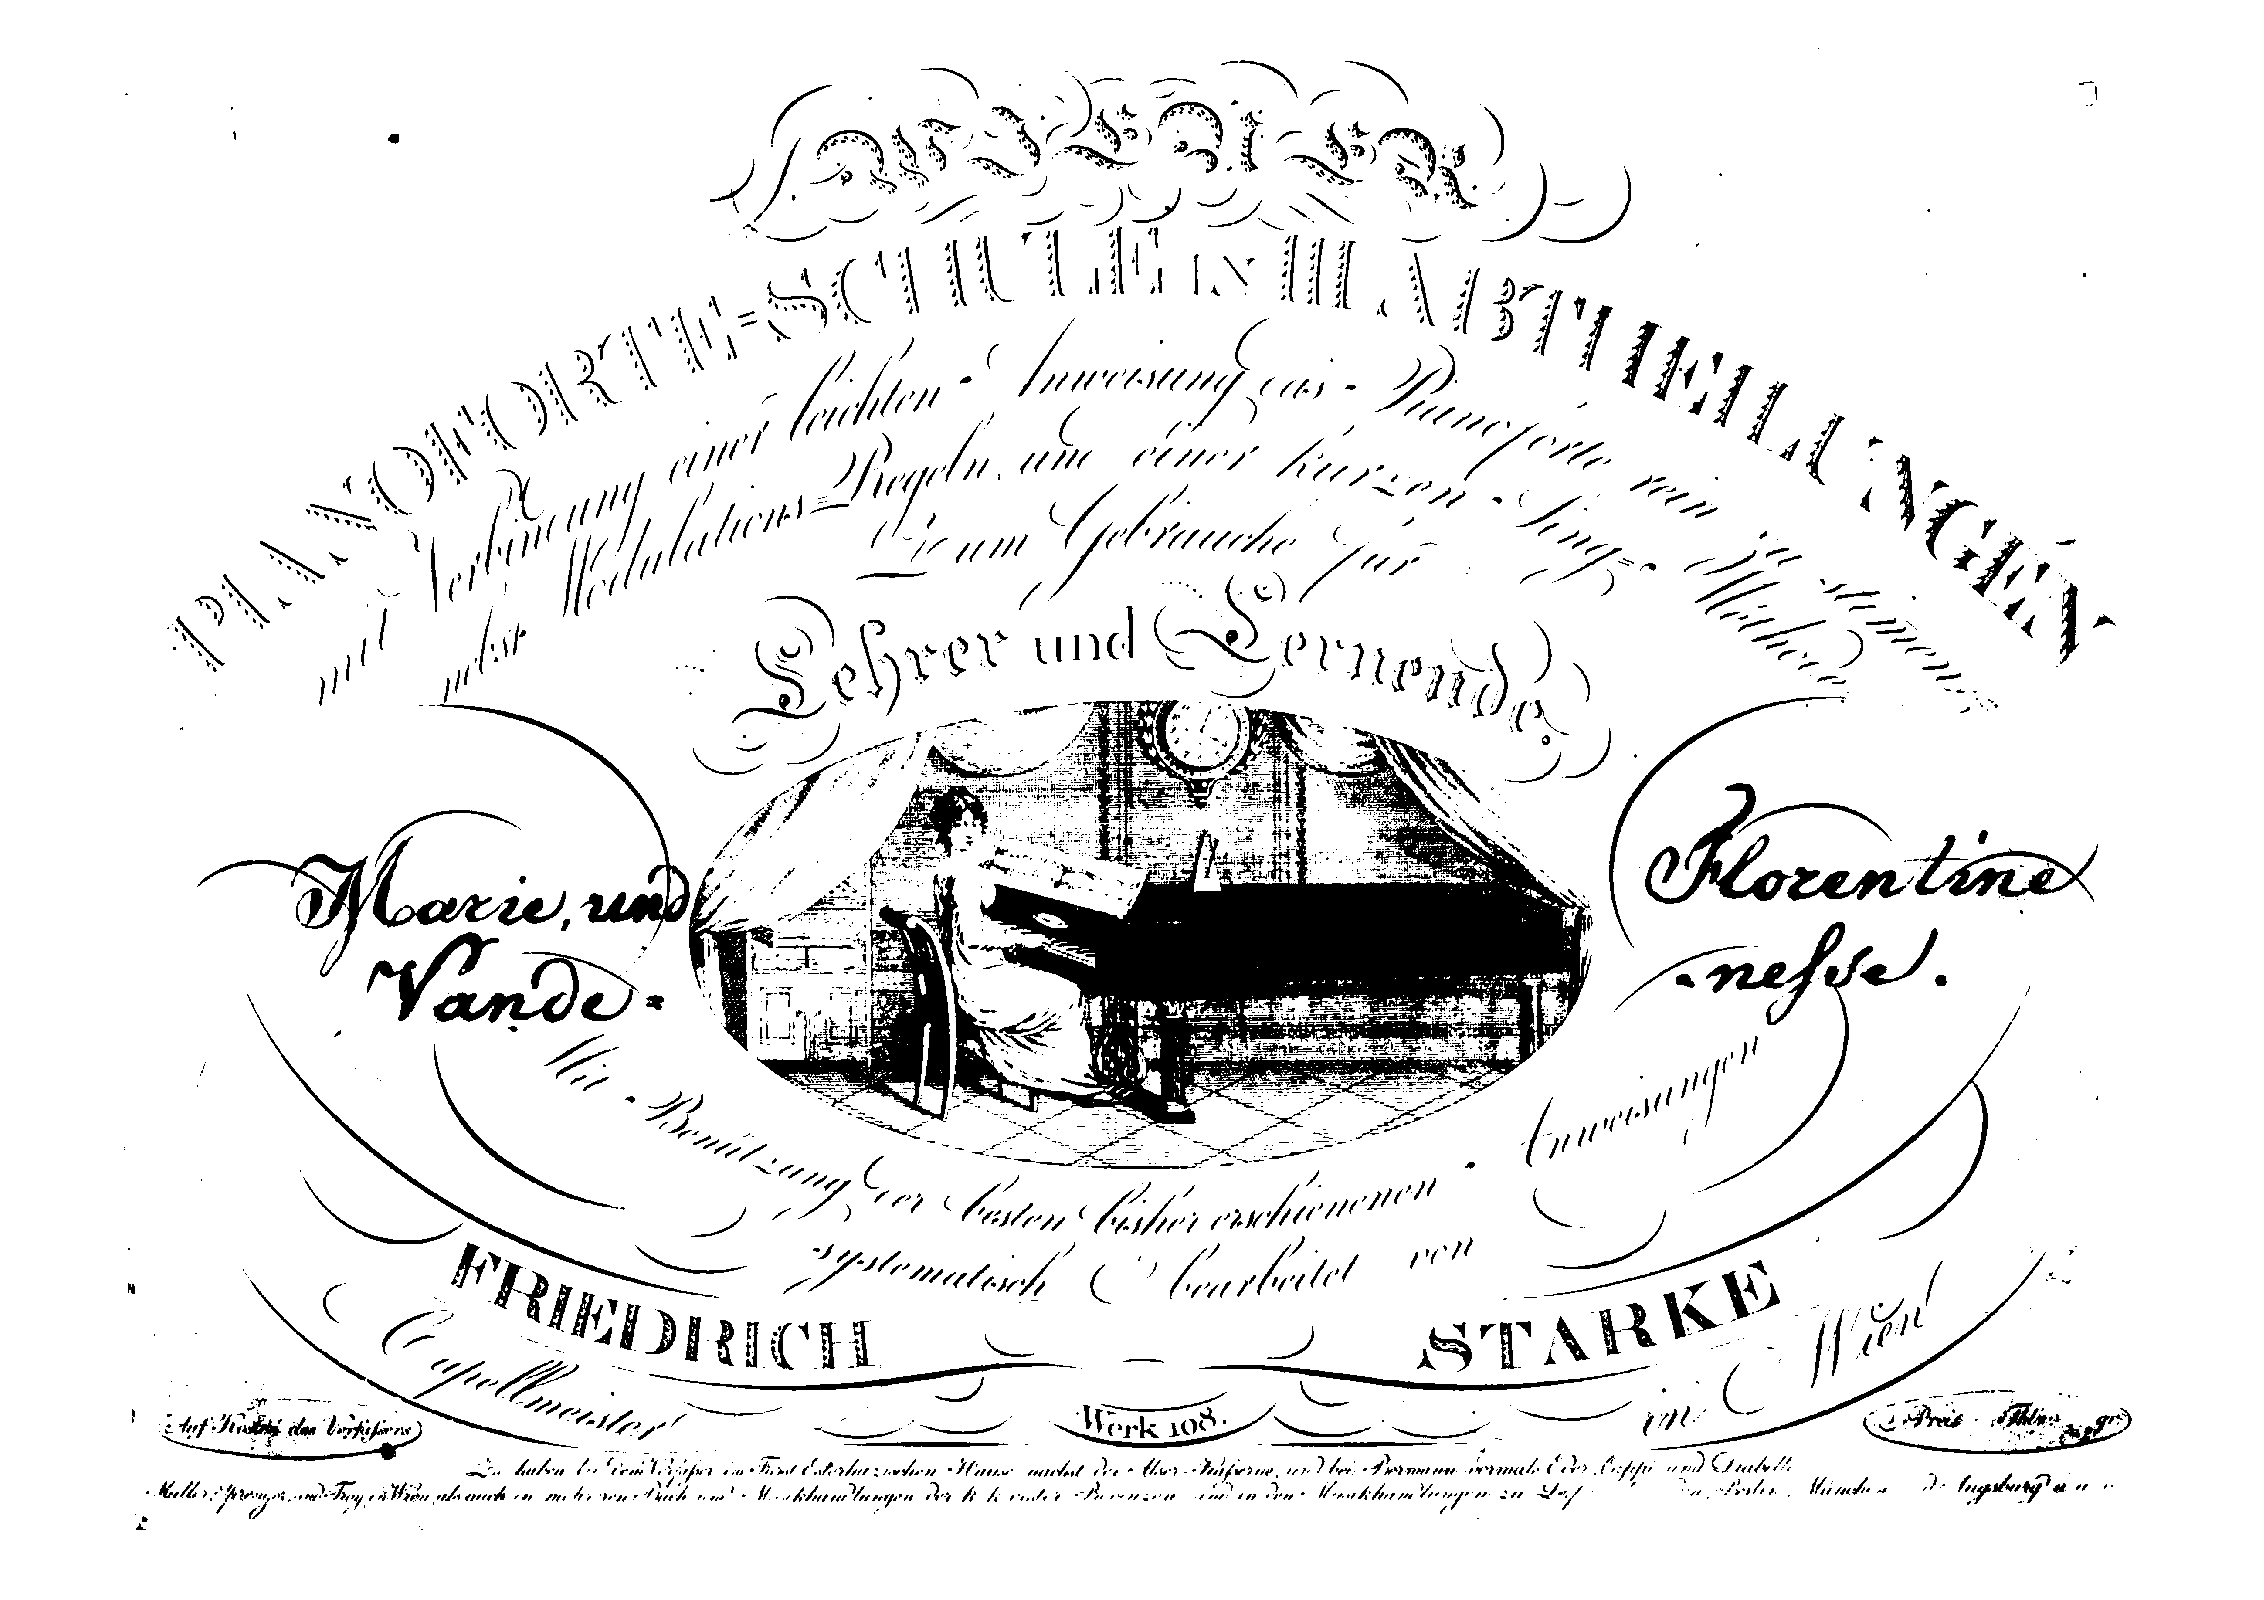 WIENER
PIANOFORTE=SCHULE IN III ABTHEILUNGEN
mit Verbindung einer leichten Anweisung das Pianoforte rein zu stimmen
nebst Modulations=Regeln, und einer kurzen Sing= Methode
Zum Gebrauche für
Lehrer und Lernende.
Marie, und Florentine
Vande= =nesse.
Mit Benützung der besten bisher erschienenen Anweisungen
systematisch bearbeitet von
FRIEDRICH STARKE
Capellmeister in Wien
Werk 108.
Auf Kosten des Verfassers
Preis
Zu haben bei dem Verfasser im Fürst Esterhazischen Hause nächst der Alser Kaserne, und bei Bermann vormals Eder, Cappi und Diabelli
in Wien, als auch in mehreren Buch und Musikhandlungen der k. k. Provinzen und in den Musikhandlungen zu Berlin, München Augsburg